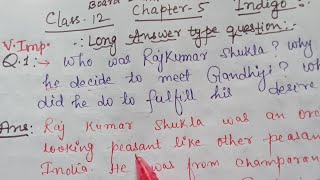 Board
Class-12 Chapter-5 Indigo
.: Long Answer type question:-
V. Imp.
Q.1:- Who was RajKumar Shukla? Why
he decide to meet Gandhiji? w
did he do to fulfill his desire
Ans: Raj Kumar Shukla was an or
looking peasant like other peasan
India. He was from Champaran